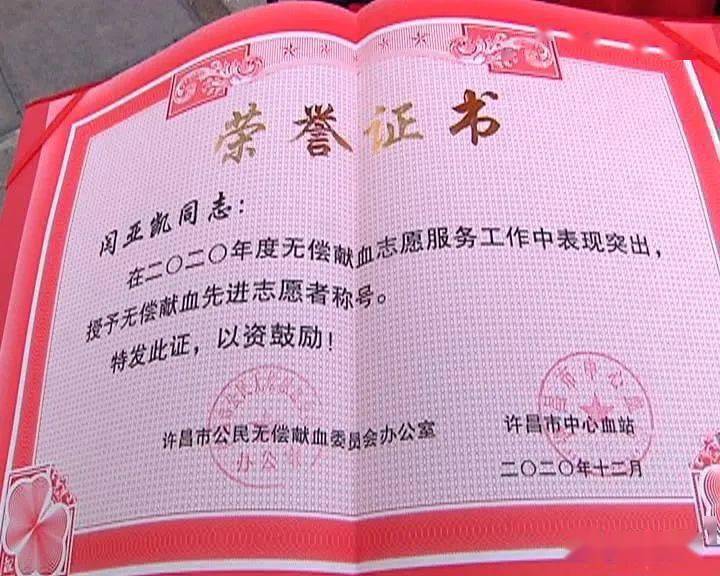 荣誉证书
闫亚凯同志：
在二〇二〇年度无偿献血志愿服务工作中表现突出，
授予无偿献血先进志愿者称号。
特发此证，以资鼓励！
许昌市公民无偿献血委员会办公室
许昌市中心血站
二〇二〇年十二月
许昌市中心血站
办公室